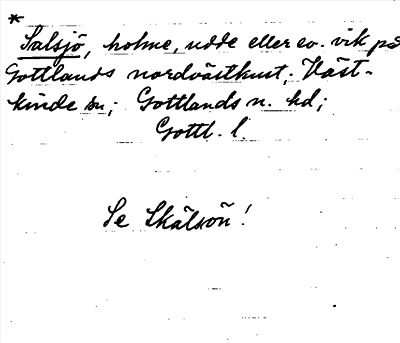 *
Salsjö, holme, udde eller ev. vik på
Gottlands nordvästkust; Väst-
kinde sn; Gottlands n. hd;
Gottl. l.
Se Skälsön!